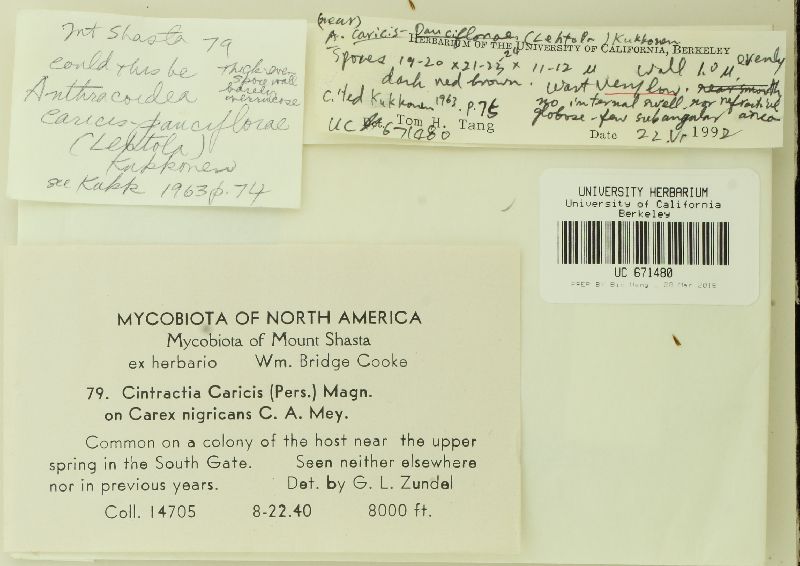 Mt Shasta 79
could this be
Anthracoidea
caricis-pauciflorae
(Lehtola)
Kukkonen
see Kukk 1963 p. 74
thick even
spore wall
barely
verrucose
(near)
A. caricis-Pauciflorae (Lehtola) Kukkonen
HERBARIUM OF THE UNIVERSITY OF CALIFORNIA, BERKELEY
Spores 19-20 x 21-23 x 11-12 µ wall 1.0 µ, evenly
dark red brown. wart very low,
no internal swell. nor refractive
cited Kukkonen 1963. p. 75
globose - few subangular
Tom H. Tang
UC 671480
Date 22.VI.1992
UNIVERSITY HERBARIUM
University of California
Berkeley
UC 671480
MYCOBIOTA OF NORTH AMERICA
Mycobiota of Mount Shasta
ex herbario Wm. Bridge Cooke
79. Cintractia Caricis (Pers.) Magn.
on Carex nigricans C. A. Mey.
Common on a colony of the host near the upper
spring in the South Gate. Seen neither elsewhere
nor in previous years. Det. by G. L. Zundel
Coll. 14705 8-22.40 8000 ft.